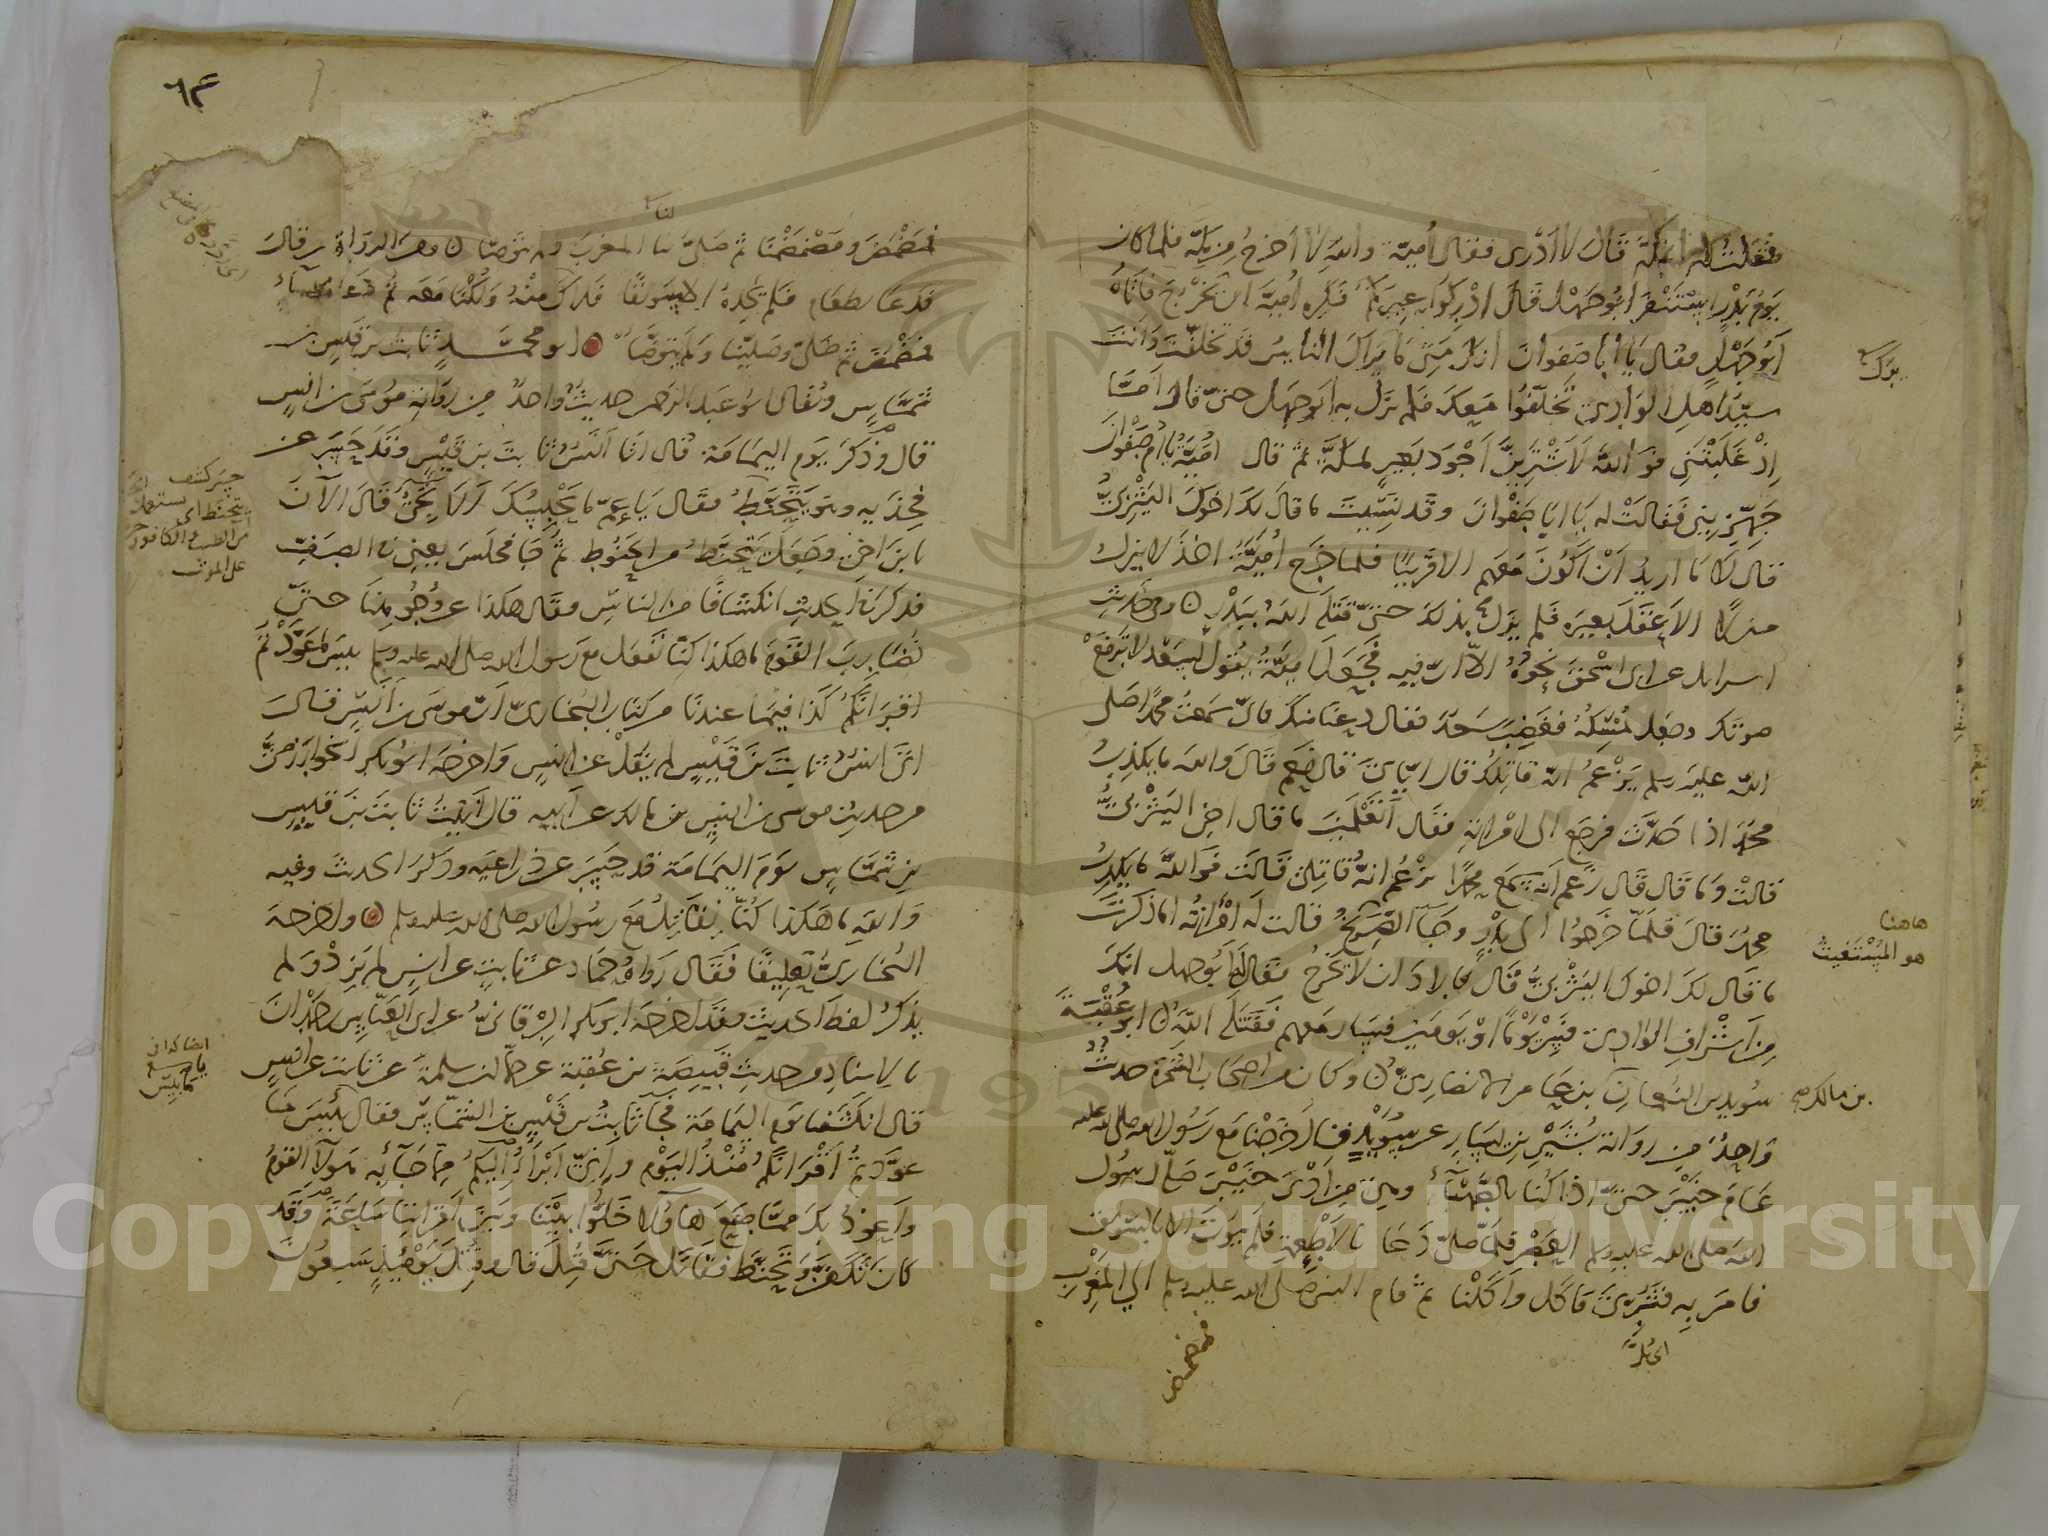 فقلت له بمكة قال لا ادري فقال أمية والله لا اخرج من مكة فلما كان
يوم بدر استنفر ابو جهل قال ادركوا عيركم فكره أمية ان يخرج فاتاه
ابو جهل فقال يا ابا صفوان انك متى ما يراك الناس قد تخلفت وانت
سيد اهل الوادي تخلفوا معك فلم يزل به ابو جهل حتى قال أما
إذ غلبتني فو الله لأشترين أجود بعير بمكة ثم قال امية يا أم صفوان
جهزيني فقالت له يا ابا صفوان وقد نسيت ما قال لك اخوك اليثربي
قال لا ما اريد أن أكون معهم الا قريبا فلما خرج أمية اخذ لا ينزل
منزلا الا عقل بعيره فلم يزل بذلك حتى قتله الله ببدر وفي حديث
اسرايل عن ابي اسحق نحوه الا ان فيه فجعل امية يقول لسعد لا ترفع
صوتك وجعل يمسكه فغضب سعد فقال دعنا منك فاني سمعت محمدا صلى
الله عليه وسلم يزعم انه قاتلك قال اياي قال نعم قال والله ما يكذب
محمد اذا حدث فرجع الى امرأته فقال أتعلمين ما قال اخي اليثربي
قالت وما قال قال زعم انه سمع محمدا يزعم انه قاتلي قالت فوالله ما يكذب
محمد قال فلما خرجوا الى بدر وجا الصريخ قالت له امرأته اما ذكرت
ما قال لك اخوك اليثربي قال فاراد ان لا يخرج فقال له ابو جهل انك
من اشراف الوادي فسر يوما او يومين فسار معهم فقتله الله ابو عقبة
سويد بن النعمان بن مالك الانصاري وكان من اصحاب الشجرة حديث
واحد من رواية بشير بن يسار عن سويد قال خرجنا مع رسول الله صلى الله عليه
عام خيبر حتى اذا كنا بالصهباء وهي من ادنى خيبر صلى رسول
الله صلى الله عليه وسلم العصر فلما صلى دعا بالأطعمة فلم يوت الا بالسويق
فامر به فثري فاكل وأكلنا ثم قام النبي صلى الله عليه وسلم الى المغرب
اي بل
فمضمض
ترك
هاهنا
هو المستغيث
بن مالك صح
٦٤
لنا
فمضمض ومضمضنا ثم صلى لنا المغرب ولم يتوضا ومن الرواة من قال
فدعا بطعام فلم يجده الا سويقا فلاك منه ولكنا معه ثم دعا بماء
فمضمض ثم صلى وصلينا ولم يتوضأ ابو محمد ثابت بن قيس بن
شماس ويقال ابو عبد الرحمن حديث واحد من رواية موسى بن انس
قال وذكر يوم اليمامة قال اتا أنس ثابت بن قيس وقد حسر عن
فخذيه وهو يتحنط فقال يا عم ما يحبسك الا تجي قال الآن
يا بن اخي وجعل يتحنط من الحنوط ثم جا فجلس يعني في الصف
فذكر في الحديث انكشافا من الناس وقال هكذا عن وجوهنا حتى
نضارب القوم ما هكذا كنا نفعل مع رسول الله صلى الله عليه وسلم بيس ما عودتم
اقرانكم كذا فيما عندنا من كتاب البخاري أن موسى بن أنس قال
اتى انس ثابت بن قيس لم يقل عن انس واخرجه ابو بكر الخوارزمي
من حديث موسى بن انس بن مالك عن ابيه قال أتيت ثابت بن قيس
بن شماس يوم اليمامة قد حسر عن ذراعيه وذكر الحديث وفيه
والله ما هكذا كنا نقاتل مع رسول الله صلى الله عليه وسلم واخرجه
البخاري تعليقا فقال رواه حماد عن ثابت عن انس لم يزد ولم
يذكر لفظ الحديث وقد اخرجه ابو بكر البرقاني عن ابي العباس بن حمدان
بالاسناد من حديث قبيصة بن عقبة عن حماد بن سلمة عن ثابت عن انس
قال انكشفنا يوم اليمامة فجآ ثابت بن قيس بن الشماس فقال بئس ما
عودتم أقرانكم منذ اليوم وإني أبرأ إليكم مما جآ به هولآ القوم
واعوذ بك مما صنع هاولا خلوا بيننا وبين أقراننا ساعة وقد
كان تكفن وتحنط فقاتل حتى قتل قال وقتل يومئذ سبعون